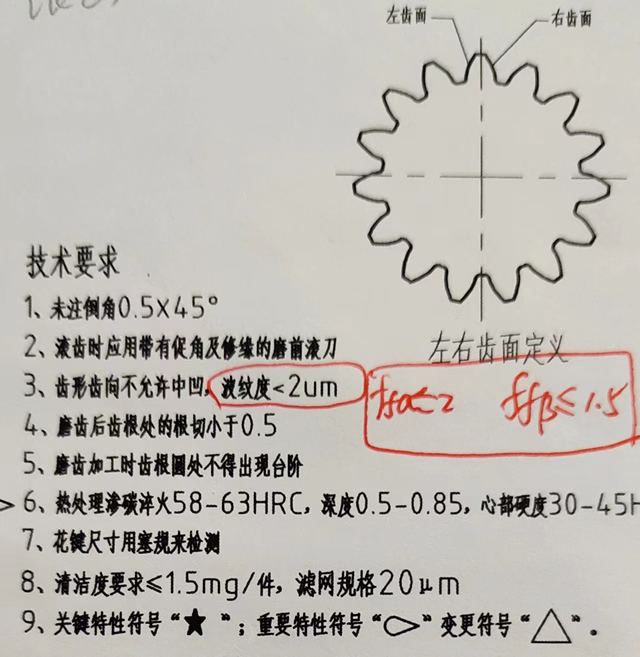 左齿面
右齿面
技术要求
1、未注倒角0.5X45°
2、滚齿时应用带有促角及修缘的磨前滚刀
3、齿形齿向不允许中凹, 波纹度<2um
4、磨齿后齿根处的根切小于0.5
5、磨齿加工时齿根圆处不得出现台阶
6、热处理渗碳淬火58-63HRC, 深度0.5-0.85, 心部硬度30-45H
7、花键尺寸用塞规来检测
8、清洁度要求≤1.5mg/件, 滤网规格20μm
9、关键特性符号“★”; 重要特性符号“”变更符号“△”。
左右齿面定义
ffα≤2 ffβ≤1.5